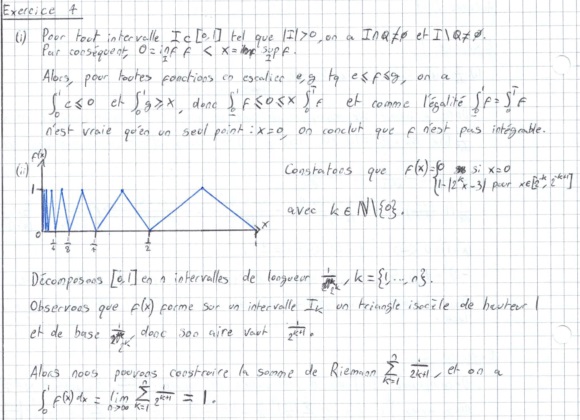 Exercice 4
(i) Pour tout intervalle I ⊂ [0,1] tel que |I|>0, on a I∩Q≠∅ et I\Q≠∅.
Par conséquent, 0 = inf_I f < x = sup_I f.
Alors, pour toutes fonctions en escalier e, g tq e≤f≤g, on a
∫_0^1 e ≤ 0 et ∫_0^1 g ≥ x, donc ∫_0^1 f ≤ 0 ≤ x ∫_0^1 f et comme l'égalité ∫_0^1 f = ∫_0^1 f
n'est vraie qu'en un seul point : x=0, on conclut que f n'est pas intégrable.
(ii) f(x)
1
0 1/2 1 x
Constatons que f(x) = {0 si x=0
{1-|2^k x-3| pour x∈[2^-k, 2^-k+1]
avec k ∈ N\{0}.
Décomposons [0,1] en n intervalles de longueur 1/2^k, k = {1,...,n}.
Observons que f(x) forme sur un intervalle I_k un triangle isocèle de hauteur 1
et de base 1/2^k, donc son aire vaut 1/2^k+1.
Alors nous pouvons construire la somme de Riemann ∑_{k=1}^n 1/2^k+1, et on a
∫_0^1 f(x) dx = lim_{n→∞} ∑_{k=1}^n 1/2^k+1 = 1.